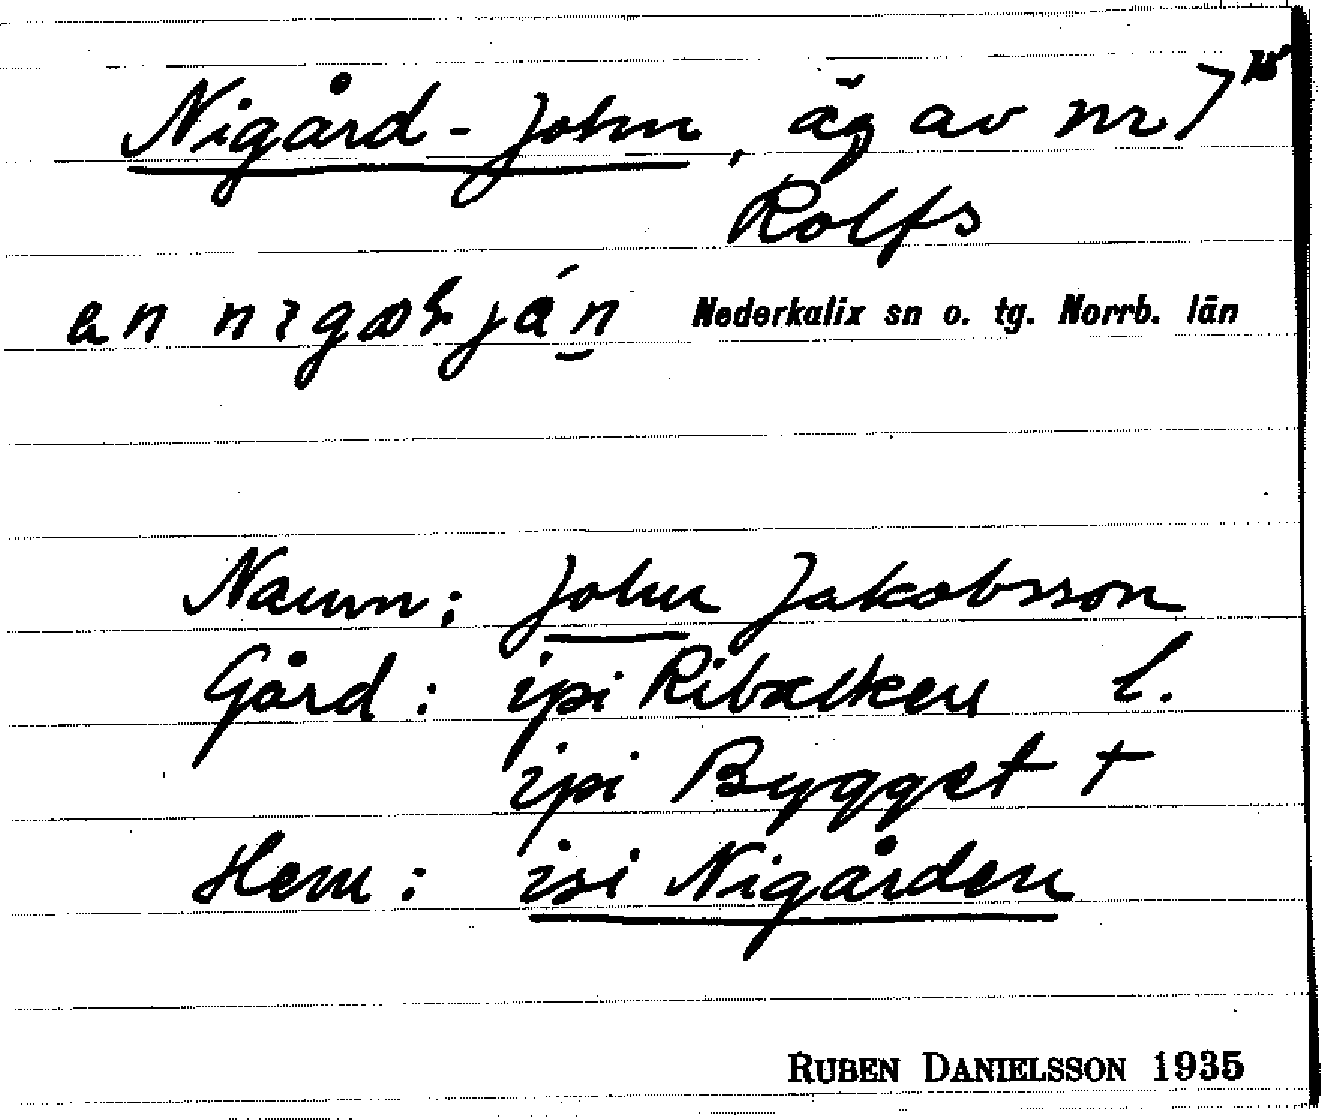 Nigård-John, äg av nr 7¹⁵
Rolfs
Nederkalix sn o. tg. Norrb. län
Namn: John Jakobsson
Gård: ipi Ribælken l.
ipi Bygget +
Hem: isi Nigården
RUBEN DANIELSSON 1935